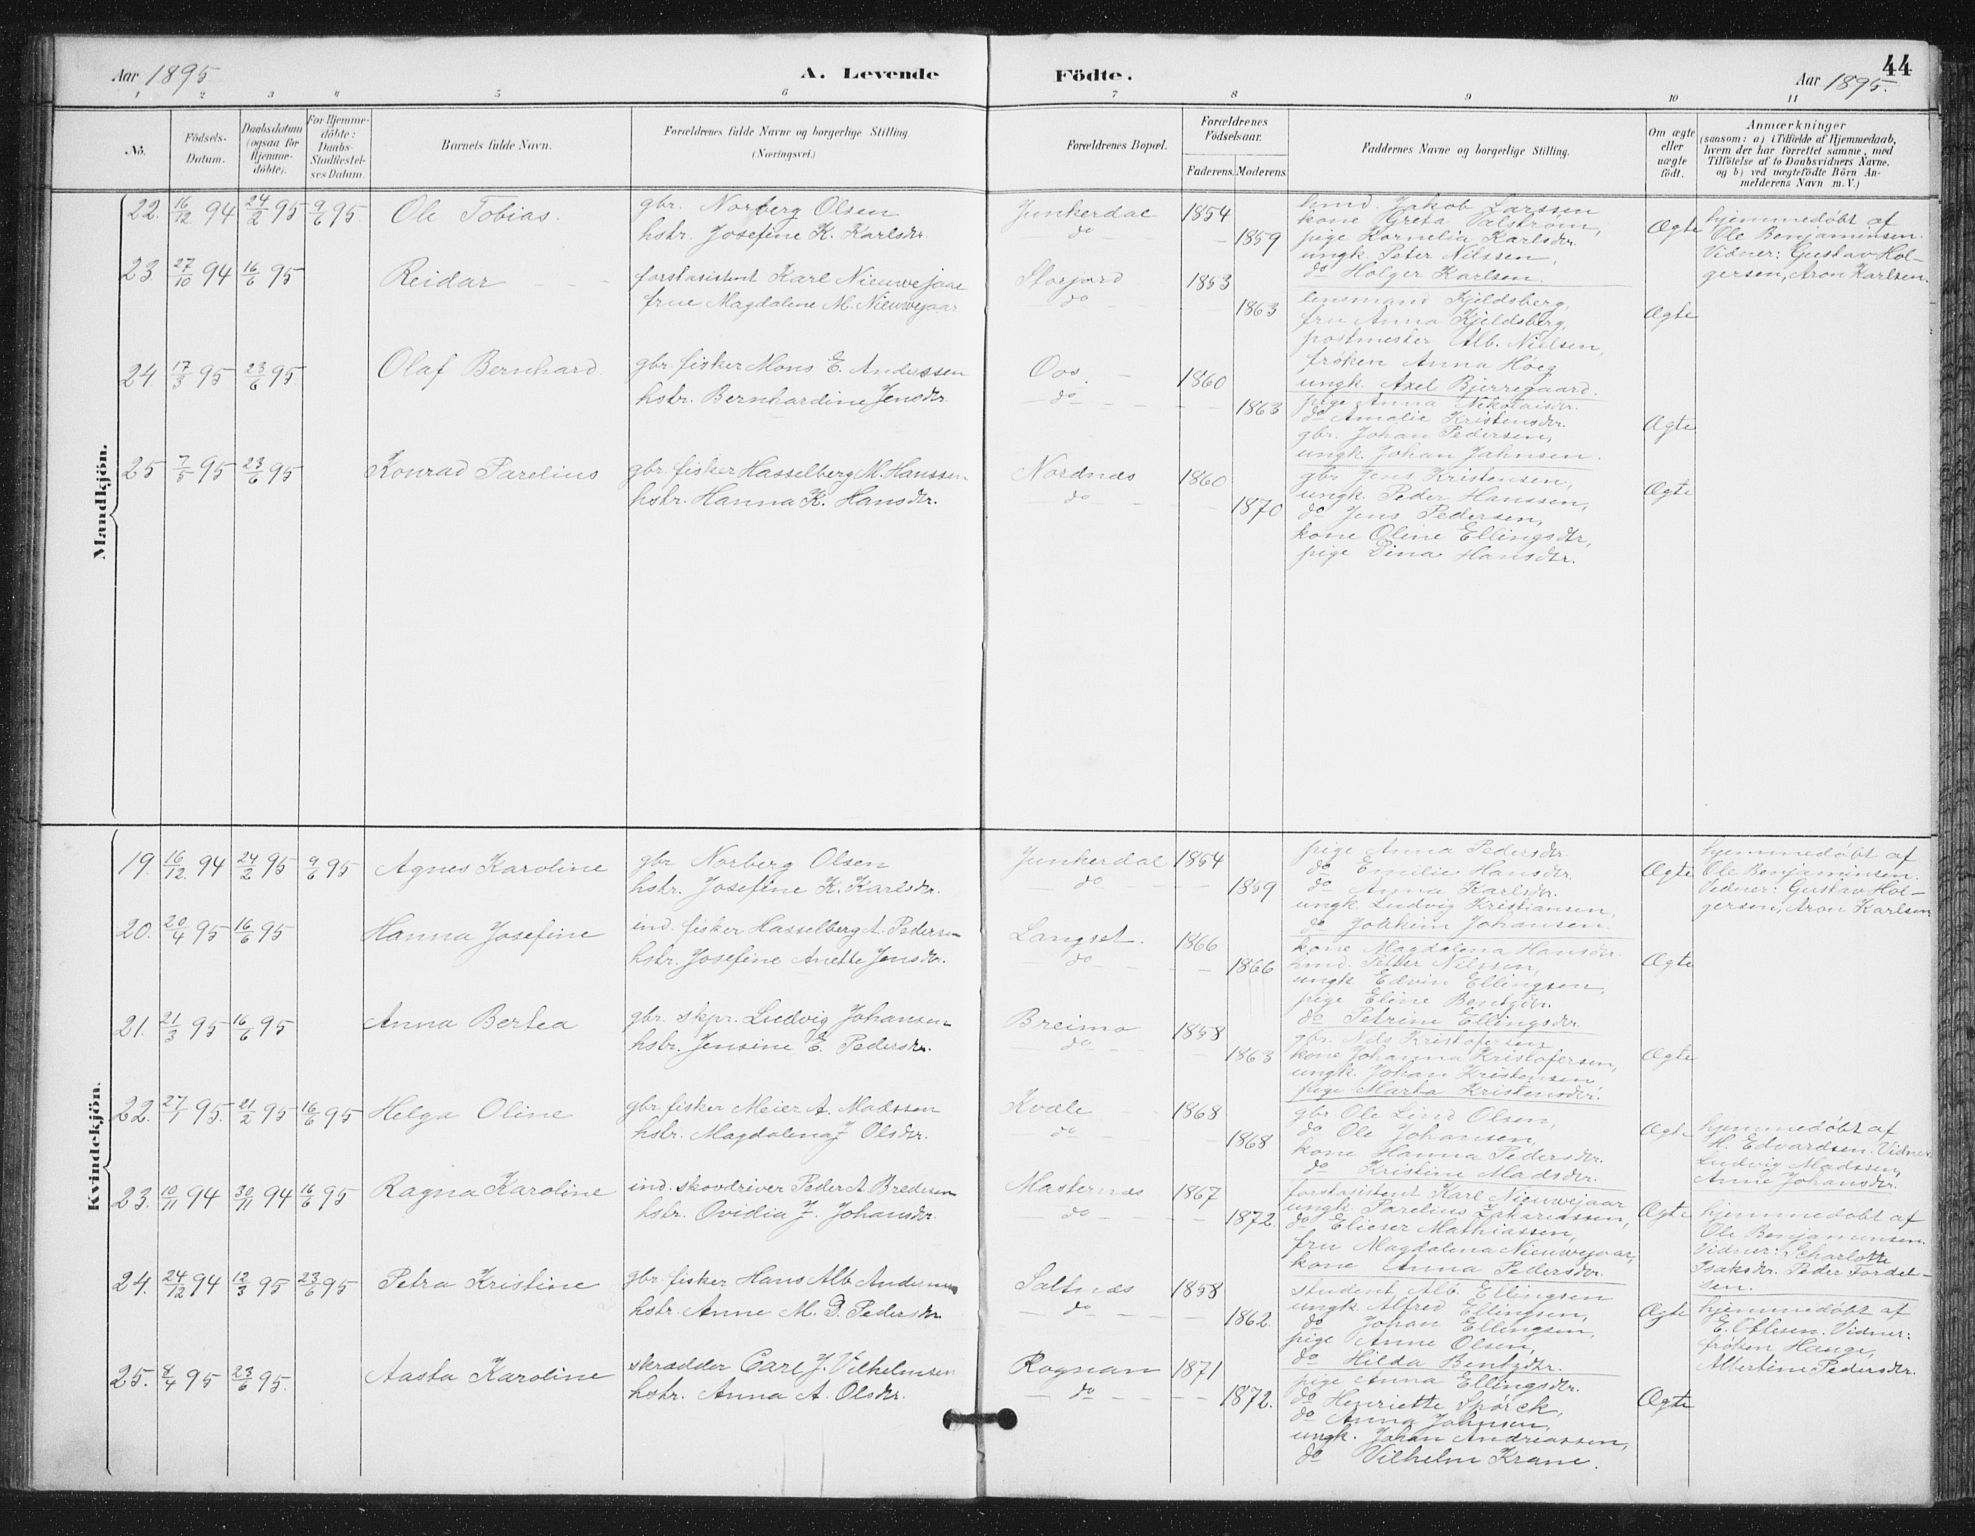 44
Aar 1895
A. Levende Födte.
Aar 1895.
1 2 3 4 5 6 7 8 9 10 11
No.
Födsels-Datum.
Daabsdatum (ogsaa for Hjemme-döbte).
For Hjemme-döbte: Daabs-Stadfæstel-ses Datum.
Barnets fulde Navn.
Forældrenes fulde Navne og borgerlige Stilling
(Næringsvei.)
Forældrenes Bopæl.
Forældrenes Födselsaar.
Faderens. Moderens.
Faddernes Navne og borgerlige Stilling.
Om ægte eller uægte födt.
Anmærkninger
(saasom: a) i Tilfælde af Hjemmedaab,
hvem der har forrettet samme, med
Tilföielse af to Daabsvidners Navne,
og b) ved uægtefödte Börn An-
melderens Navn m. V.)
Mandkjön.
22. 16/12 94 24/2 95 9/6 95. Ole Tobias.
gbr. Norberg Olsen
hstr. Josefine K. Karlsdtr.
Junkerdal 1854
do 1859
kmd. Jakob Larssen
kone Greta Valstrøm,
pige Kornelia Karlsdtr.
ungk. Peter Nilssen,
do Holger Karlsen.
Ægte
hjemmedøbt af
Ole Benjaminsen.
Vidner: Gustav Hol-
gersen, Aron Karlsen.
23 27/10 94 16/6 95 Reidar
forstasistent Karl Nieuwejaar
frue Magdalene M. Nieuwejaar
Storjord 1853
do 1863
lensmand Kjeldsberg,
fru Anna Kjeldsberg,
postmester Alb. Nielsen,
frøken Anna Høeg
ungk. Axel Bjerregaard.
Ægte
24 17/3 95 23/6 95. Olaf Bernhard.
gbr. fisker Mons E. Anderssen
hstr. Bernhardine Jensdtr.
Oos. 1860
do 1863
pige Anna Nikolaisdtr.
do Amalie Kristensdtr.
gbr. Johan Pedersen,
ungk. Johan Jahnsen.
Ægte
25 7/5 95 23/6 95 Konrad Parelius
gbr. fisker Hasselberg M. Hanssen
hstr. Hanna K. Hansdtr.
Nordnæs 1860
do 1870
gbr. Jens Kristensen,
ungk. Peder Hanssen,
do Jens Pedersen,
kone Oline Ellingsdtr,
pige Dina Hansdtr.
Ægte
Kvindekjön.
19. 16/12 94 24/2 95 9/6 95 Agnes Karoline
gbr Norberg Olsen
hstr. Josefine K. Karlsdtr.
Junkerdal 1854
do 1859
pige Anna Pedersdtr.
do Emilie Hansdtr.
do Anna Karlsdtr.
ungk Ludvig Kristiansen,
do Joakim Johansen.
Ægte
hjemmedøbt af
Ole Benjaminsen.
Vidner: Gustav Hol-
gersen, Aron Karlsen
20. 20/4 95 16/6 95 Hanna Josefine
ind. fisker Hasselberg A. Pedersen
hstr. Josefine Anette Jensdtr.
Langset. 1866
do 1866
kone Magdalena Hansdtr.
kmd. Petter Nilssen,
ungk Edvin Ellingsen,
pige Eline Bentzdtr.
do Petrine Ellingsdtr.
Ægte
21. 21/3 95 16/6 95 Anna Bertea
gbr. skpr. Ludvig Johansen
hstr. Jensine E. Pedersdtr.
Breimo 1858
do 1863
gbr. Nils Kristofersen
kone Johanna Kristofersen,
ungk. Johan Kristensen,
pige Marta Kristensdtr.
Ægte
22. 27/1 95. 21/2 95 16/6 95 Helga Oline
gbr fisker Meier A. Madssen
hstr. Magdalena J Olsdtr.
Kvæle 1868
do 1868
gbr. Ole Lind Olsen,
do Ole Johansen,
kone Hanna Pedersdtr.
do Kristine Madsdtr.
Ægte
hjemmedøbt af
H. Edvardsen. Vidner
Ludvig Madssen,
Anne Johansdtr.
23. 10/11 94 30/11 94 16/6 95 Ragna Karoline
ind. skovdriver Peder A Bredesen
hstr. Ovidia J. Johansdtr.
Masternæs 1867
do 1872.
forstasistent Karl Nieuwejaar
ungk. Parelius Zakariassen,
do Elieser Mathiassen,
fru Magdalena Nieuwejaar,
kone Anna Pedersdtr.
Ægte
hjemmedøbt af
Ole Benjaminsen.
Vidner: Scharlotte
Isaksdtr. Peder Fordel-
sen.
24. 24/12 94 12/3 95 23/6 95 Petra Kristine
gbr. fisker Hans Alb. Andersen
hstr. Anne M. D. Pedersdtr.
Saltnæs 1858
do 1862.
student Alb. Ellingsen
ungk Alfred Ellingsen,
do Johan Ellingsen,
pige Anne Olsen,
do Hilda Bentzdtr.
Ægte
hjemmedøbt af
E. Ottesen. Vidner:
frøken Hauge,
Albertine Pedersdtr.
25. 8/4 95 23/6 95. Aasta Karoline
skrædder Carl J. Vilhelmsen
hstr. Anna A. Olsdtr.
Rognan 1871
do 1872.
pige Anna Ellingsdtr.
do Henriette Spørck,
do Anna Johnsen,
ungk. Johan Andreassen,
do Vilhelm Krane.
Ægte